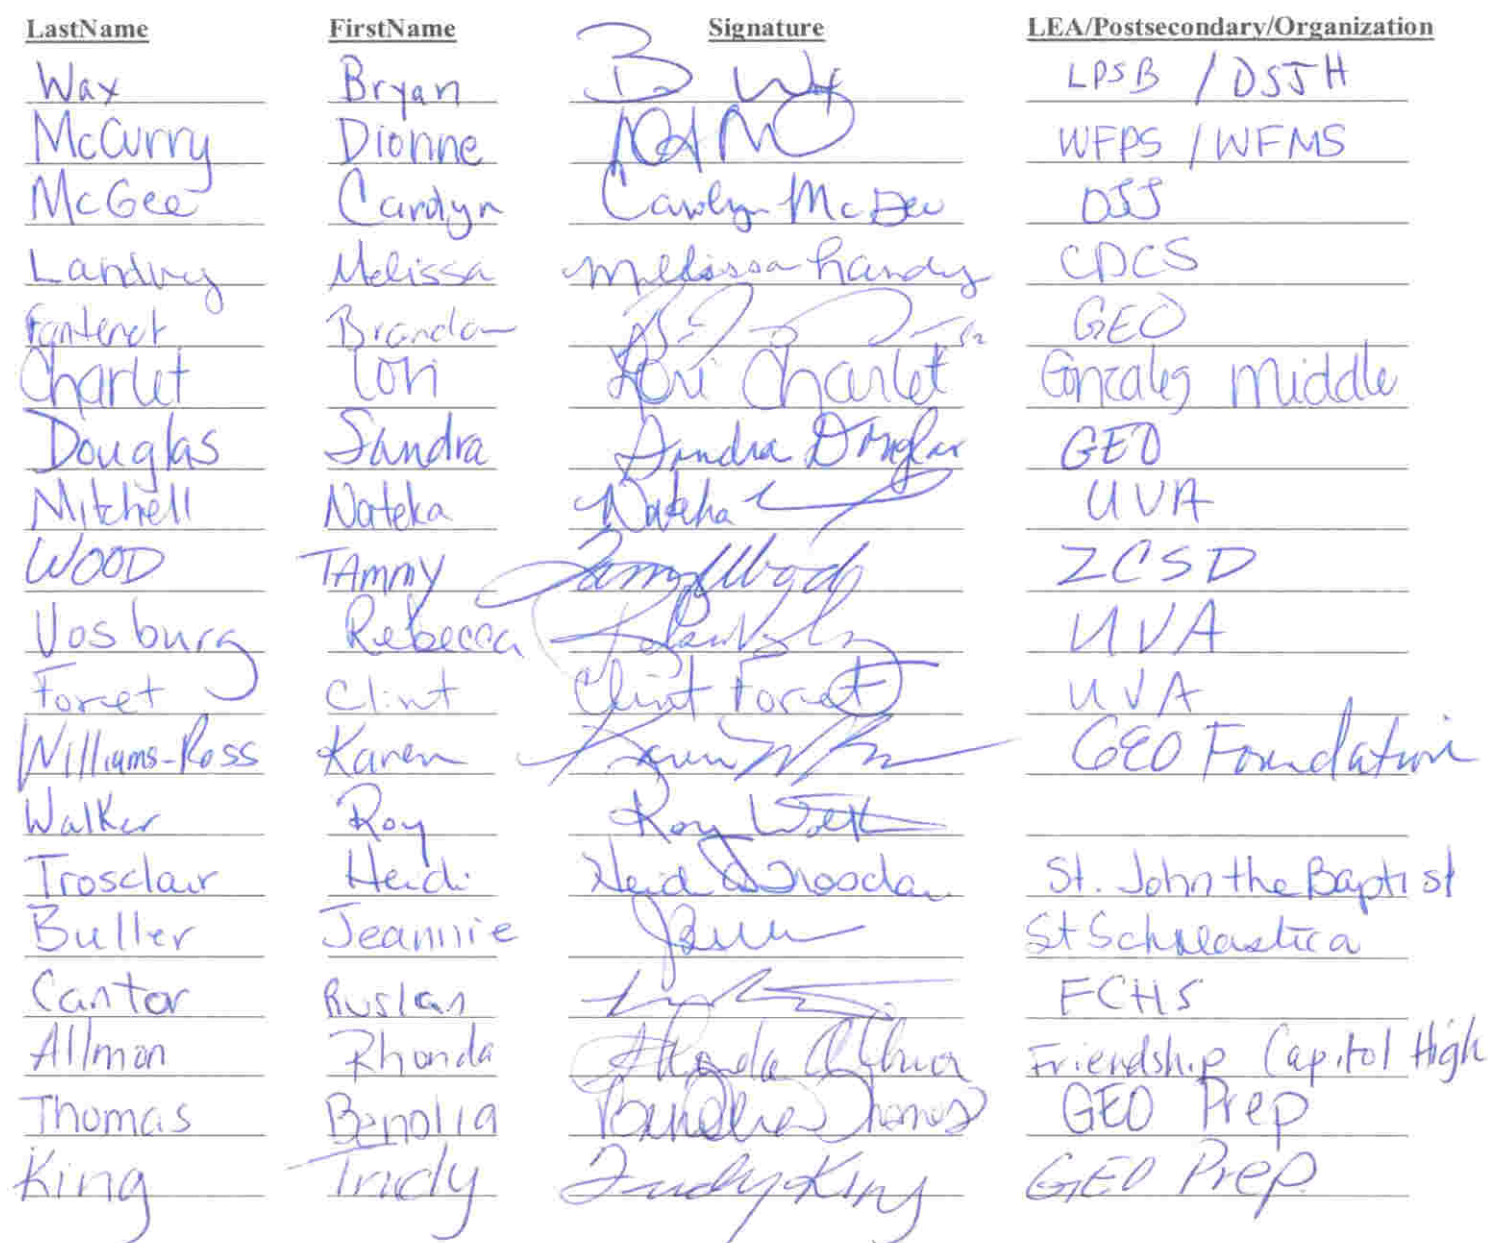 LastName FirstName Signature LEA/Postsecondary/Organization
Wax Bryan B Wax LPSB / DSJH
McCurry Dionne WFPS / WFMS
McGee Carolyn Carolyn McGee
Landry Melissa Melissa Landry CDCS
Brandon GEO
Charlet Lori Lori Charlet Gonzales Middle
Douglas Sandra Sandra Douglas GEO
Mitchell Nateka Nateka UVA
WOOD TAmmy Tammy Wood ZCSD
Vosburg Rebecca UVA
Forcet Clint Clint Forcet UVA
Williams-Ross Karen Karen GEO Foundation
Walker Roy Roy St. John the Baptist
Trosclair Heidi Heidi Trosclair
Buller Jeannie JBuller St Scholastica
Cantor Ruslan FCHS
Allmon Rhonda Rhonda Friendship Capitol High
Thomas Benolia Benolia Thomas GEO Prep
King Trudy Trudy King GEO Prep